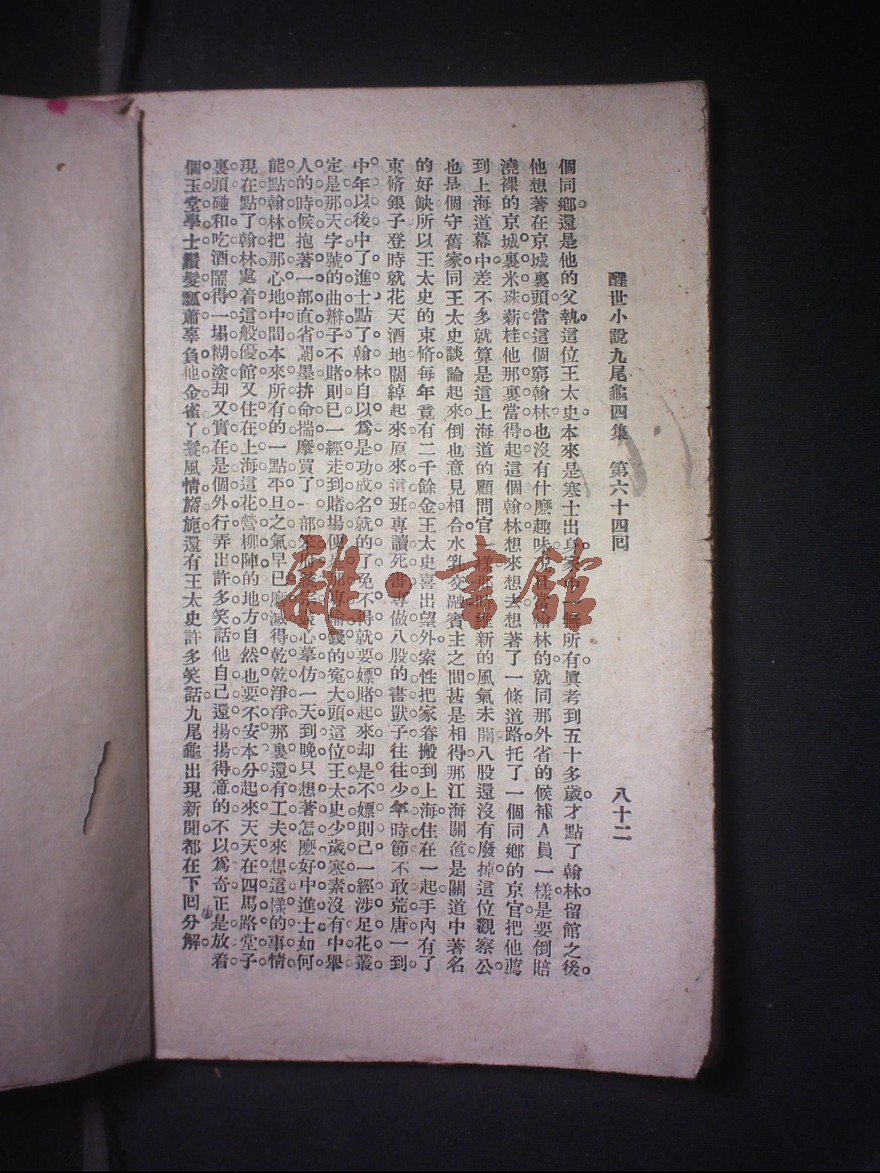 醒世小說九尾龜四集　第六十四回　八十二
個同鄉還是他的父執。這位王太史本來是寒士出身家中無所有。眞考到五十多歲才點了翰林留館之後。
他想著在京城裏頭當這個窮翰林也沒有什麼趣味翰林的就同那外省的候補人員一樣是要倒賠
澆裸的京城。裏米珠薪桂他那裏當得起這個翰林想來想去想著了一條道路托了一個同鄉的京官。把他薦
到上海道幕中。差不多就算是這上海道的顧問官一樣那時維新的風氣未開八股還沒有廢掉。這位觀察公
也是個守舊家。同王太史談論起來。倒也意見相合。水乳交融賓主之間。甚是相得那江海關道是關道中著名
的好缺所以王太史的束脩每年竟有二千餘金王太史喜出望外。索性把家眷搬到上海。住在一起手內有了
束脩銀子登時就花天酒地闊綽起來原來這班專讀死書專做八股的書獃子往往少年時節不敢荒唐一到
中年以後中了進士點了翰林自以爲是功成名就的了免不得就要嫖賭起來却是不嫖則已一經涉足花叢
定是那天字號的曲辮子不賭則已一經走到賭場便是那專輸錢的寃大頭這位王太史少歲寒素沒有中舉
人的時候抱著一部直省闈墨拚命揣摩買了一部心摹仿一天到晚只想著怎麼好中進士如何
能點翰林把那心地中間本來所有的一點平旦之氣早已磨滅得乾乾淨淨那裏還有工夫來想這樣的事情
現在點了翰林處着這般優館又住在上海這花營柳陣的地方自然也要不安本分起來天天在四馬路堂子
裏頭碰和吃酒鬧得一場糊塗却又實在是個外行弄出許多笑話他自己還揚揚得意的不以爲奇正是放着
個玉堂學士鬚髮飄蕭辜負他金雀丫鬟風情旖旎還有王太史許多笑話九尾龜出現新聞都在下回分解